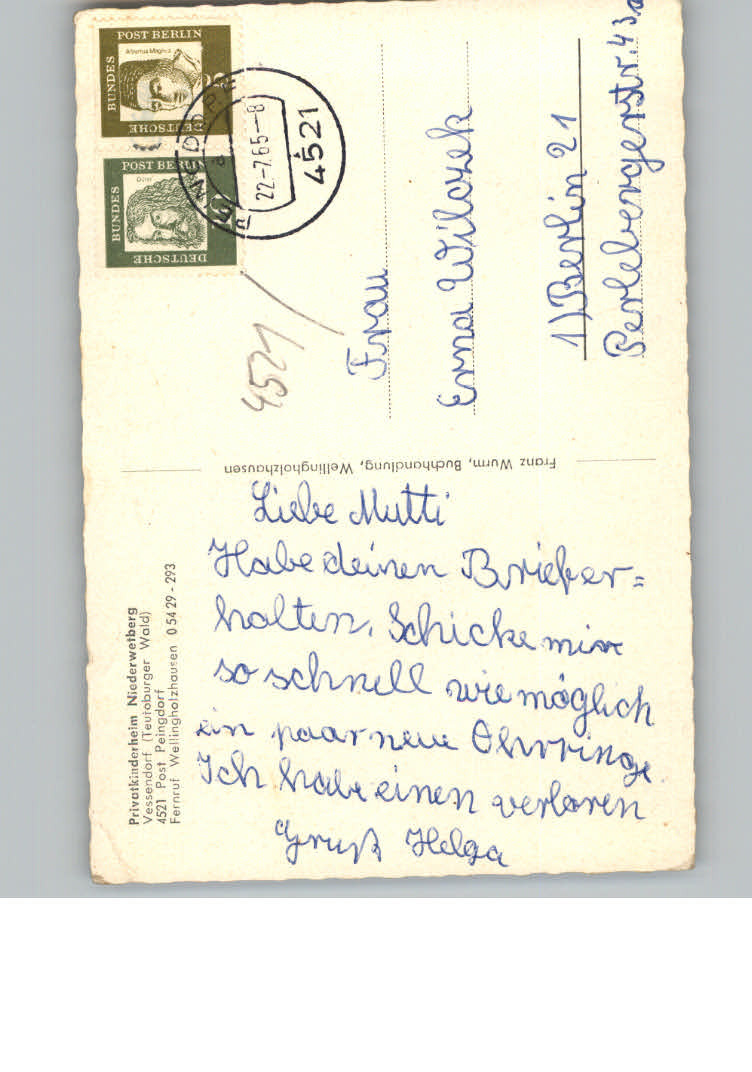 Privatkinderheim Niederwetberg
Vessendorf (Teutoburger Wald)
4521 Post Peingdorf
Fernruf Wellingholzhausen 0 54 29 - 293
Liebe Mutti
Habe deinen Brief er=
halten. Schicke mir
so schnell wie möglich
ein paar neue Ohrringe
Ich habe einen verloren
Gruß Helga
Franz Wurm, Buchhandlung, Wellingholzhausen
DEUTSCHE BUNDES POST BERLIN
Albertus Magnus
DEUTSCHE BUNDES POST BERLIN
Dürer
22-7.65-8
4521
4521
Frau
Erna Wilczek
1) Berlin 21
Perlebergerstr. 43a